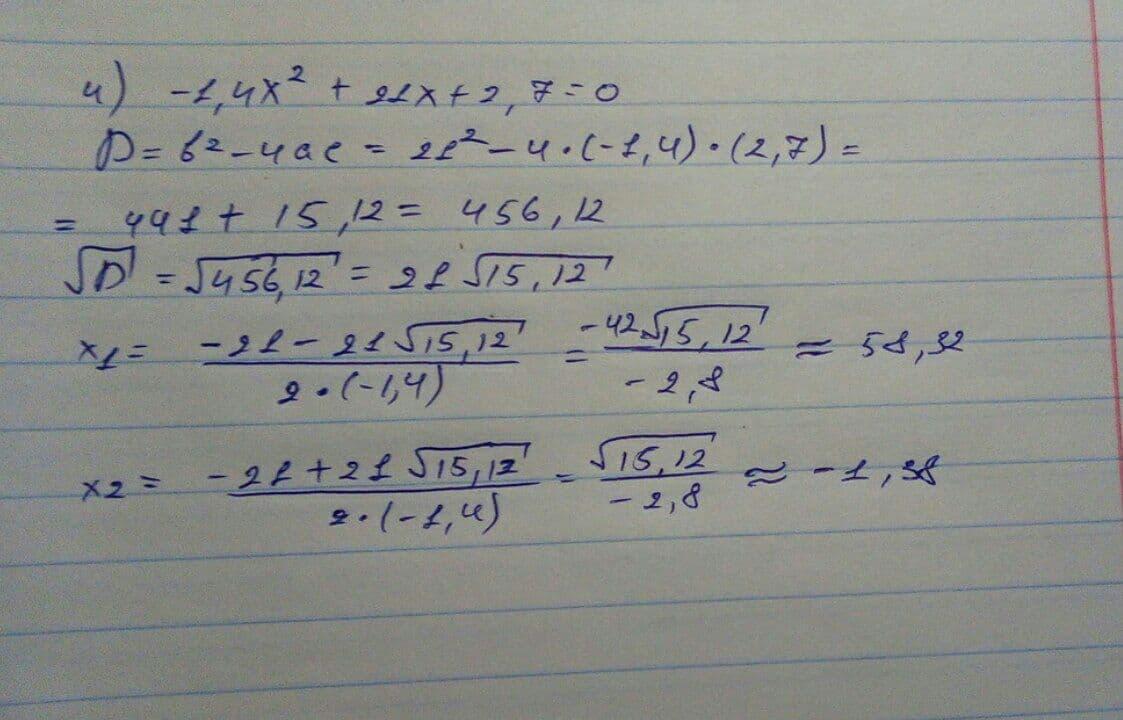 4) -1,4x² + 21x + 2,7 = 0
D = b² - 4ac = 21² - 4 · (-1,4) · (2,7) =
= 441 + 15,12 = 456,12
√D = √456,12 = 21√15,12
x1 = (-21 - 21√15,12) / (2 · (-1,4)) = (-42√15,12) / (-2,8) ≈ 58,32
x2 = (-21 + 21√15,12) / (2 · (-1,4)) = √15,12 / (-2,8) ≈ -1,38